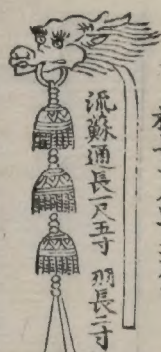 流蘇通長一尺五寸 羽長二寸